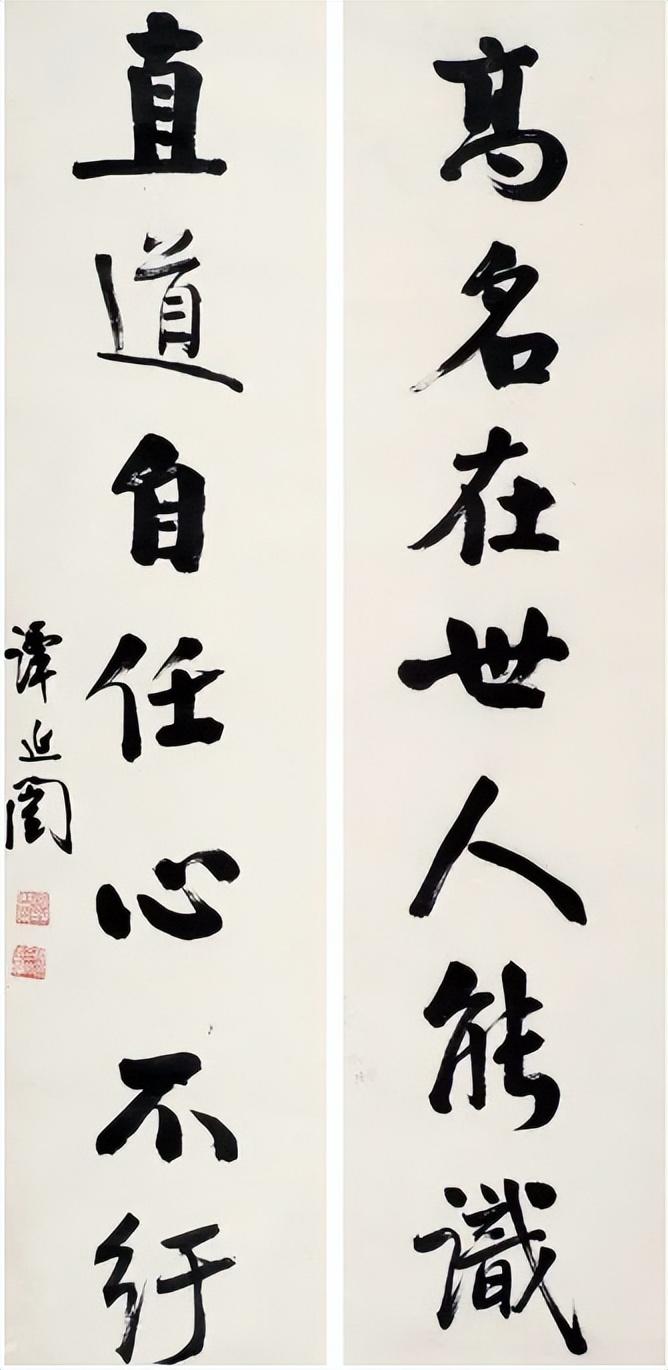 高名在世人能識
直道自任心不紆
譚延闓